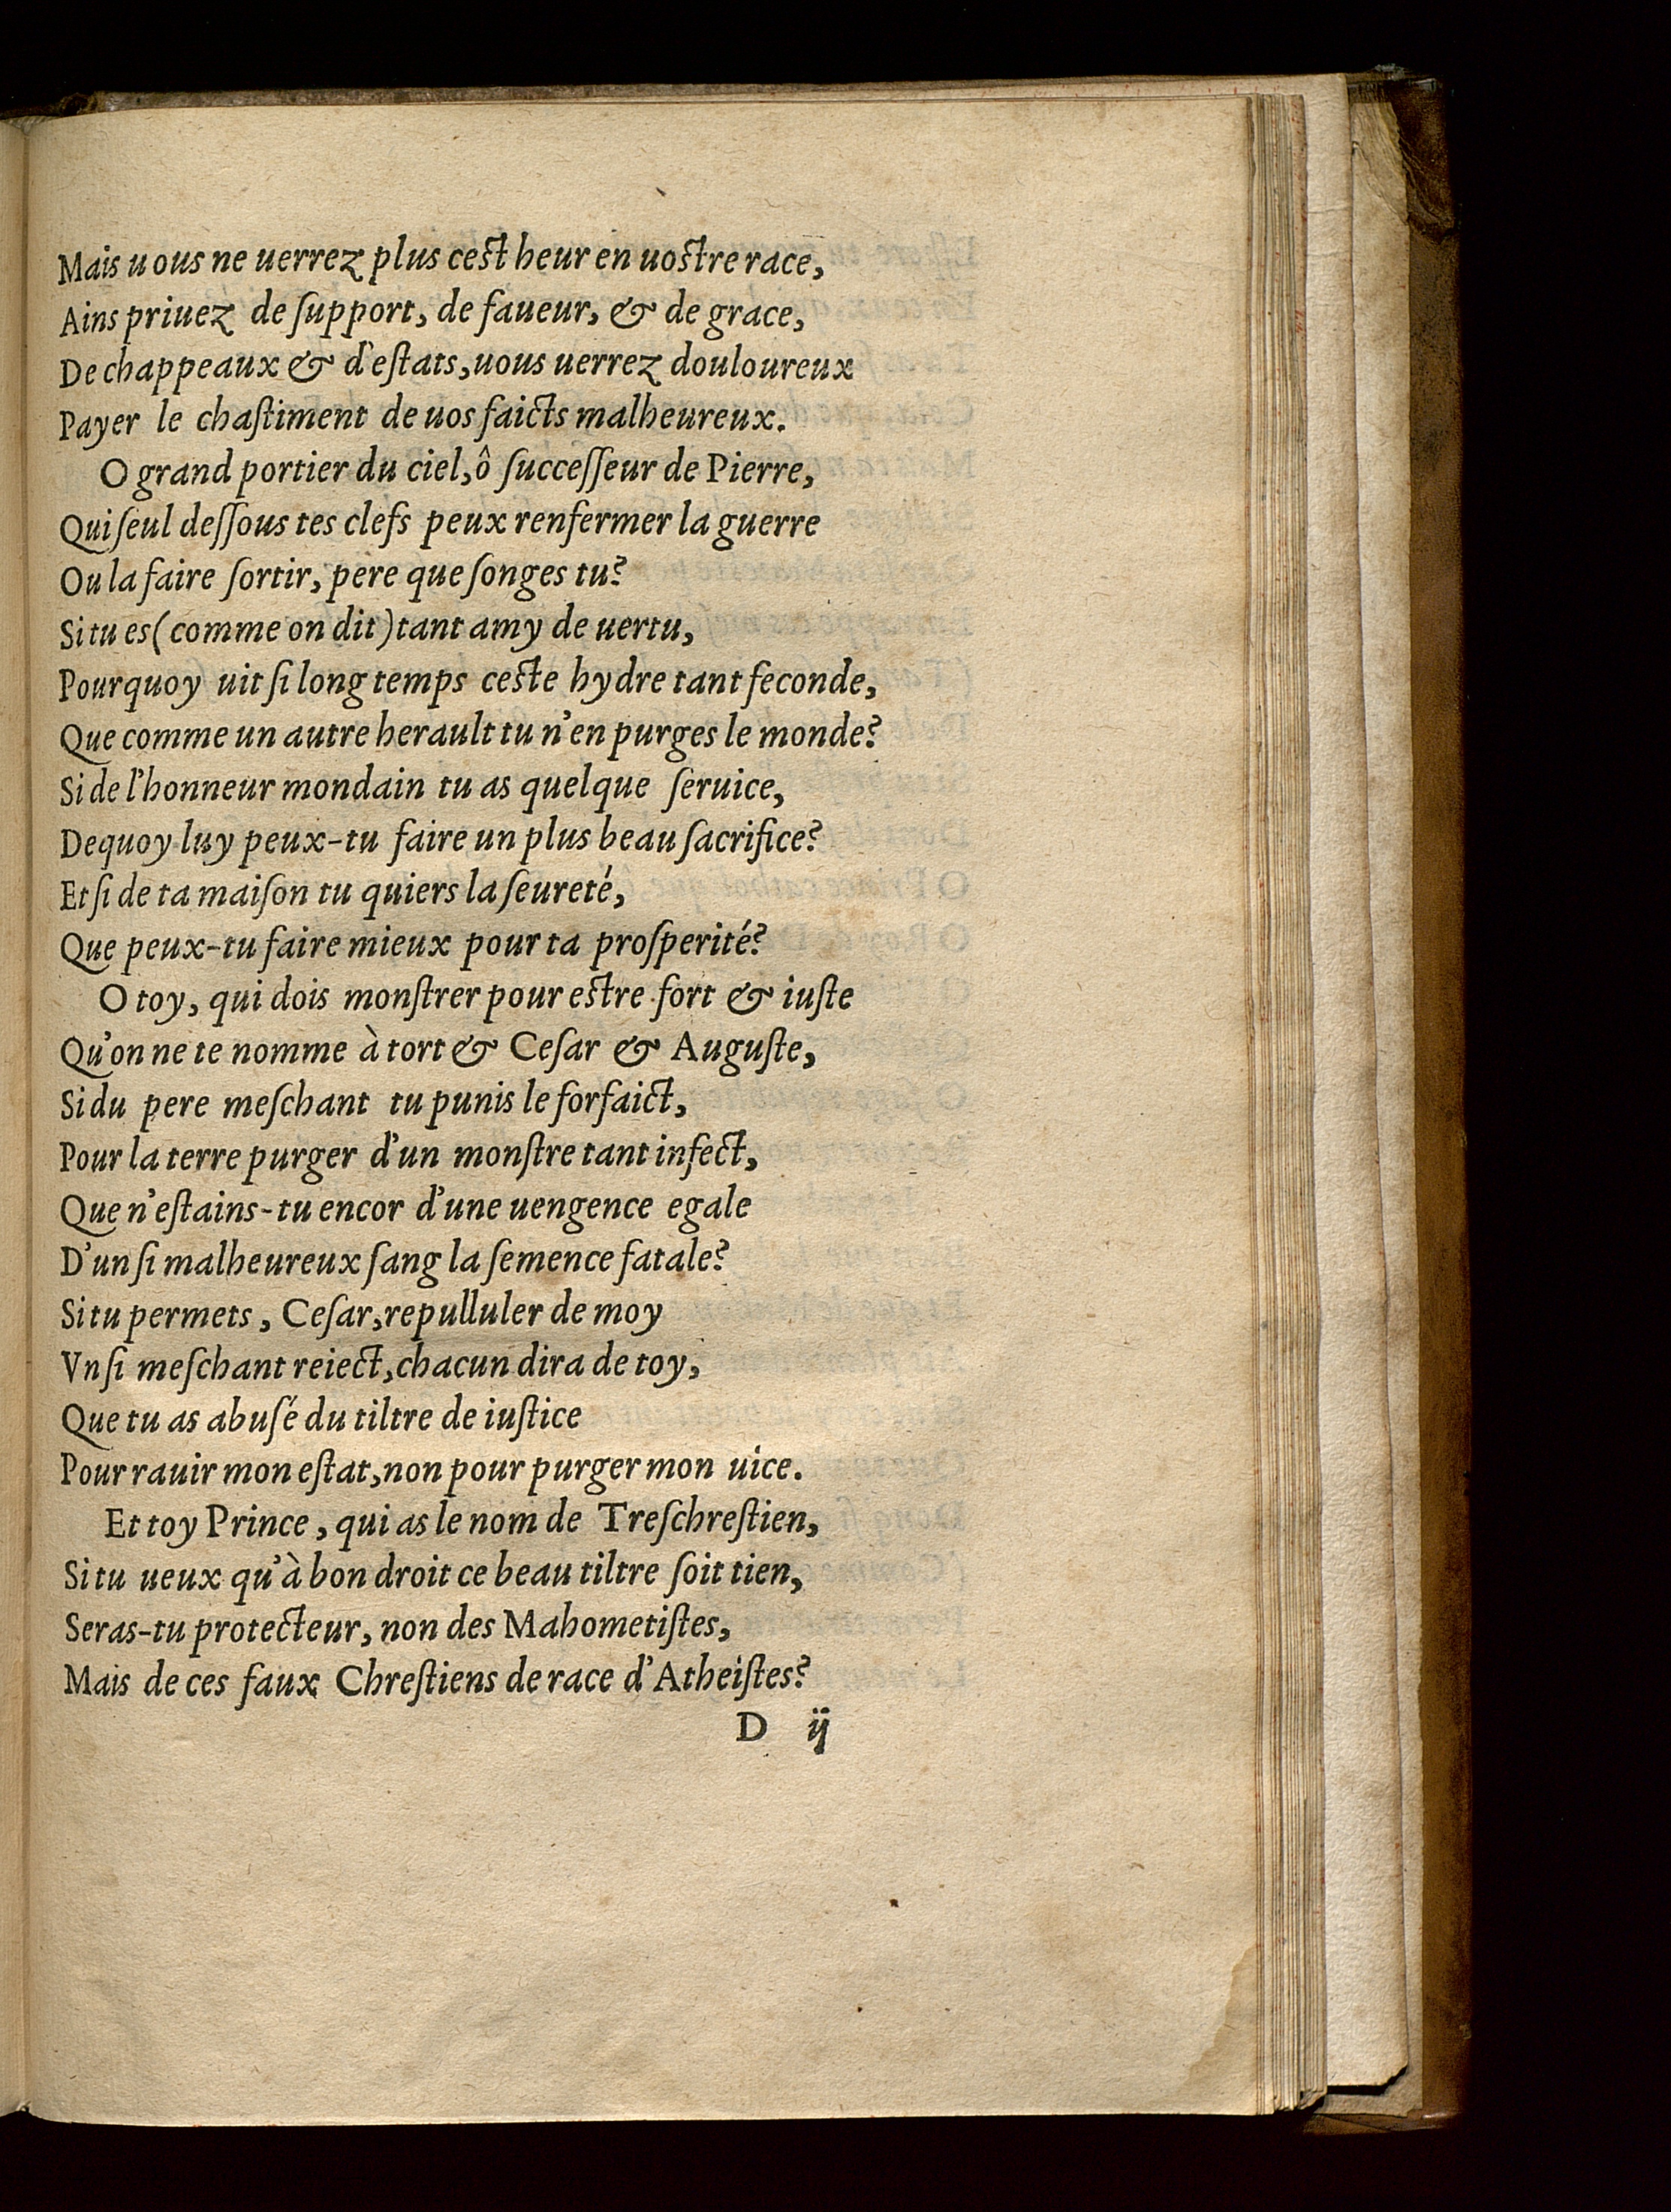 Mais uous ne uerrez plus cest heur en uostre race,
Ains priuez de ſupport, de faueur, & de grace,
De chappeaux & d'eſtats, uous uerrez douloureux
Payer le chaſtiment de uos faicts malheureux.
O grand portier du ciel, ô ſucceſſeur de Pierre,
Qui ſeul deſſous tes clefs peux renfermer la guerre
Ou la faire ſortir, pere que ſonges tu?
Si tu es (comme on dit) tant amy de uertu,
Pourquoy uit ſi long temps ceste hydre tant feconde,
Que comme un autre herault tu n'en purges le monde?
Si de l'honneur mondain tu as quelque ſeruice,
Dequoy luy peux-tu faire un plus beau ſacrifice?
Et ſi de ta maiſon tu quiers la ſeureté,
Que peux-tu faire mieux pour ta proſperité?
O toy, qui dois monſtrer pour estre fort & iuſte
Qu'on ne te nomme à tort & Ceſar & Auguſte,
Si du pere meſchant tu punis le forfaict,
Pour la terre purger d'un monſtre tant infect,
Que n'eſtains-tu encor d'une uengence egale
D'un ſi malheureux ſang la ſemence fatale?
Si tu permets, Ceſar, repulluler de moy
Vn ſi meſchant reiect, chacun dira de toy,
Que tu as abuſé du tiltre de iuſtice
Pour rauir mon eſtat, non pour purger mon uice.
Et toy Prince, qui as le nom de Treſchreſtien,
Si tu ueux qu'à bon droit ce beau tiltre ſoit tien,
Seras-tu protecteur, non des Mahometiſtes,
Mais de ces faux Chreſtiens de race d'Atheiſtes?
D ij